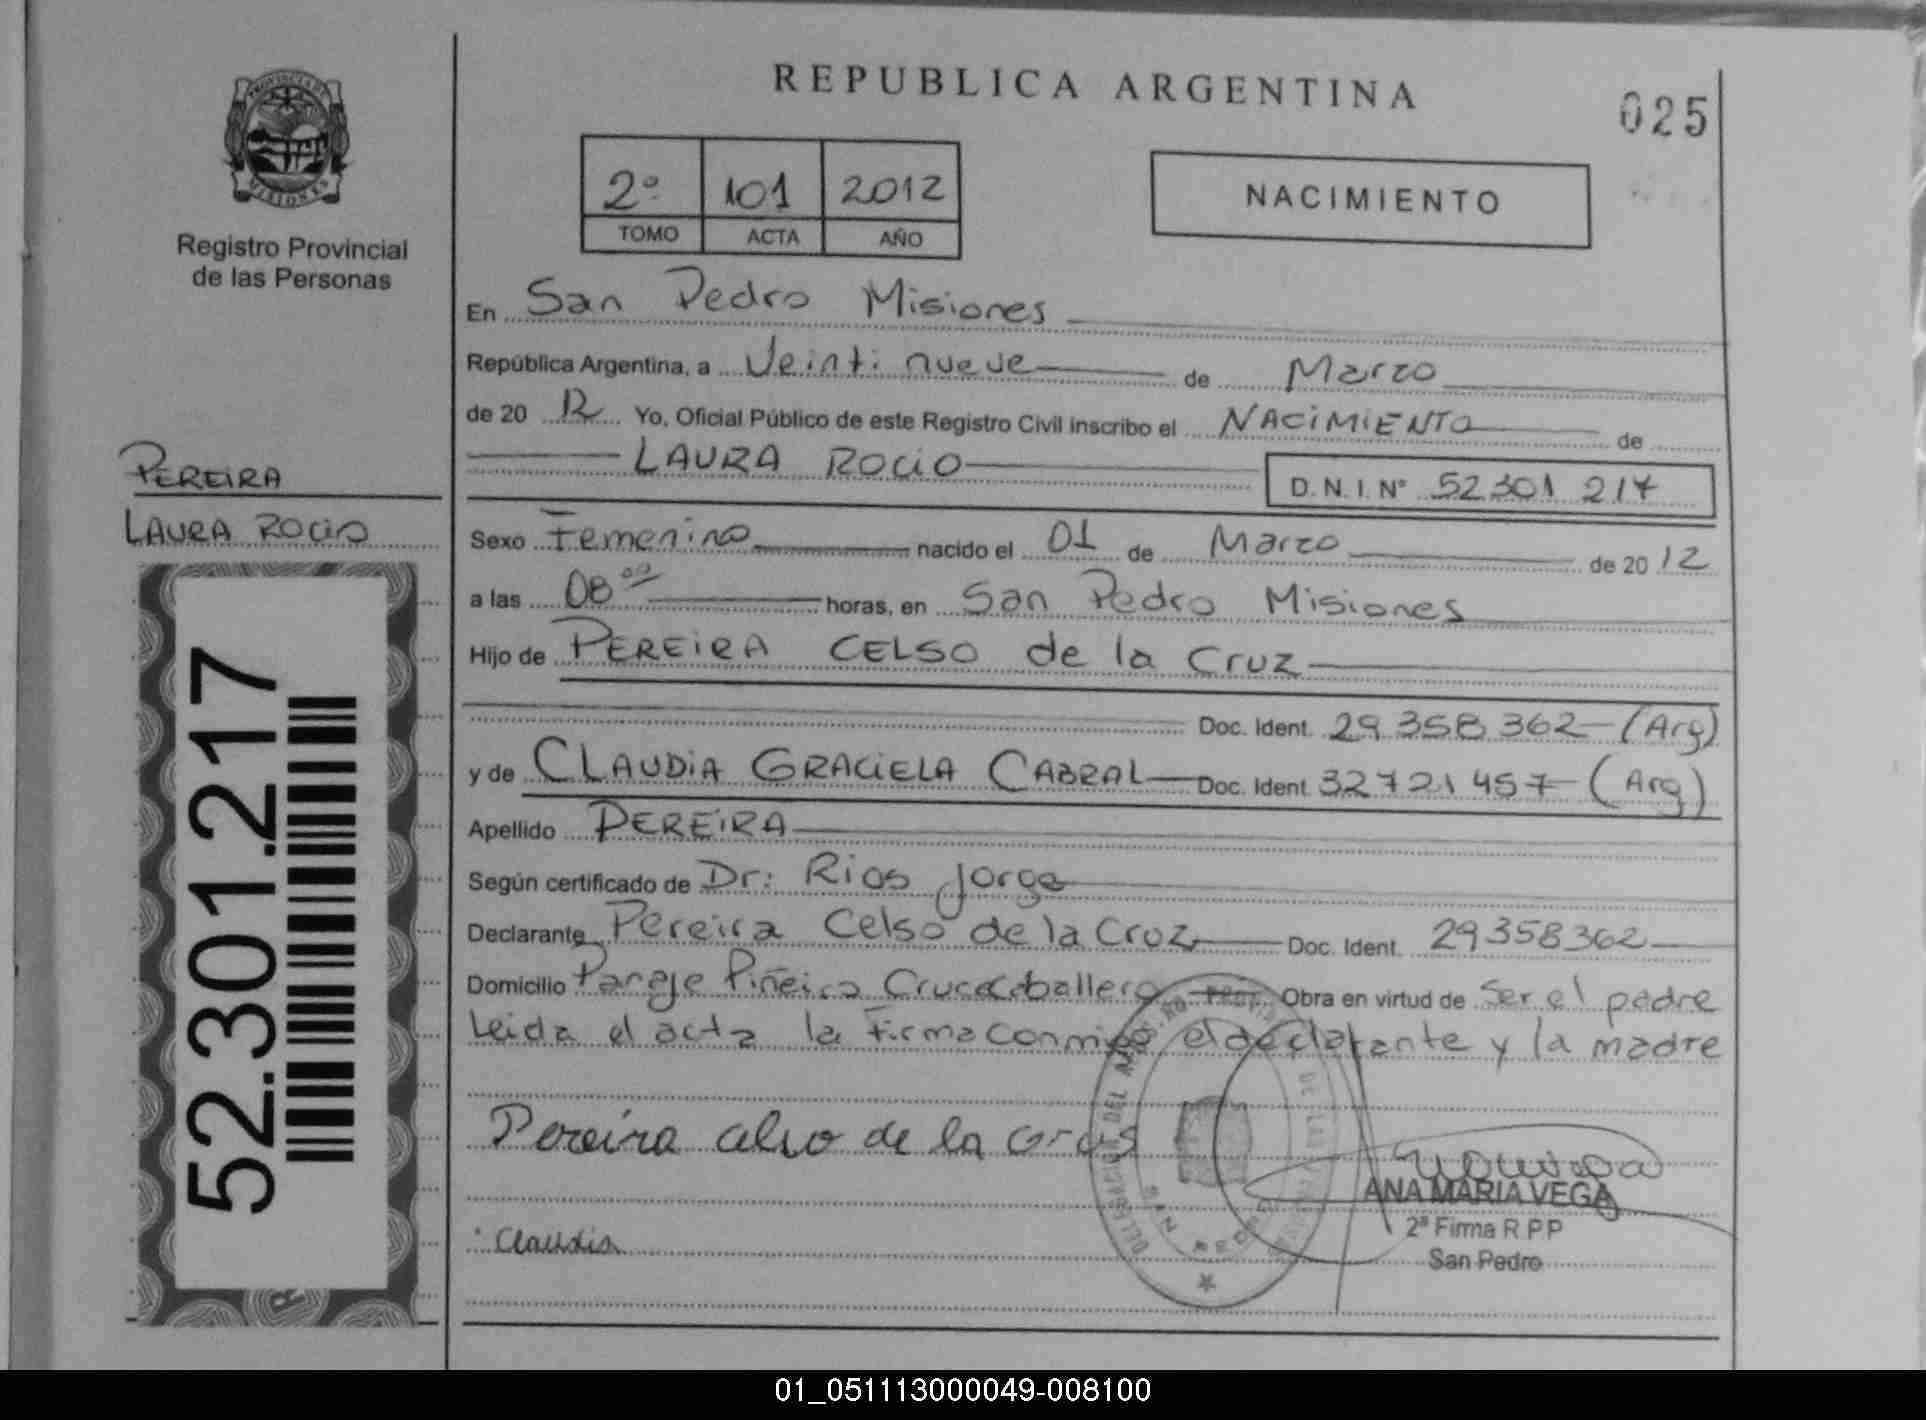 REPUBLICA ARGENTINA
025
PROVINCIA DE
MISIONES
Registro Provincial
de las Personas
2º 101 2012
TOMO ACTA AÑO
NACIMIENTO
En San Pedro Misiones
República Argentina, a Veinti nueve de Marzo
de 20 12 Yo, Oficial Público de este Registro Civil inscribo el NACIMIENTO de
LAURA ROCIO
D.N.I. Nº 52301 217
PEREIRA
LAURA ROCIO
52.301.217
Sexo Femenino nacido el 01 de Marzo de 20 12
a las 08 00 horas, en San Pedro Misiones
Hijo de PEREIRA CELSO de la Cruz
Doc. Ident. 29 358 362 (Arg)
y de CLAUDIA GRACIELA CABRAL Doc. Ident. 32721457 (Arg)
Apellido PEREIRA
Según certificado de Dr: Rios Jorge
Declarante Pereira Celso de la Cruz Doc. Ident. 29358362
Domicilio Paraje Piñeiro Cruce Caballero Obra en virtud de Ser el padre
Leida el acta la Firma conmigo el declarante y la madre
Pereira celso de la crus
ANA MARIA VEGA
2ª Firma R.P.P
San Pedro
Claudia
01_051113000049-008100